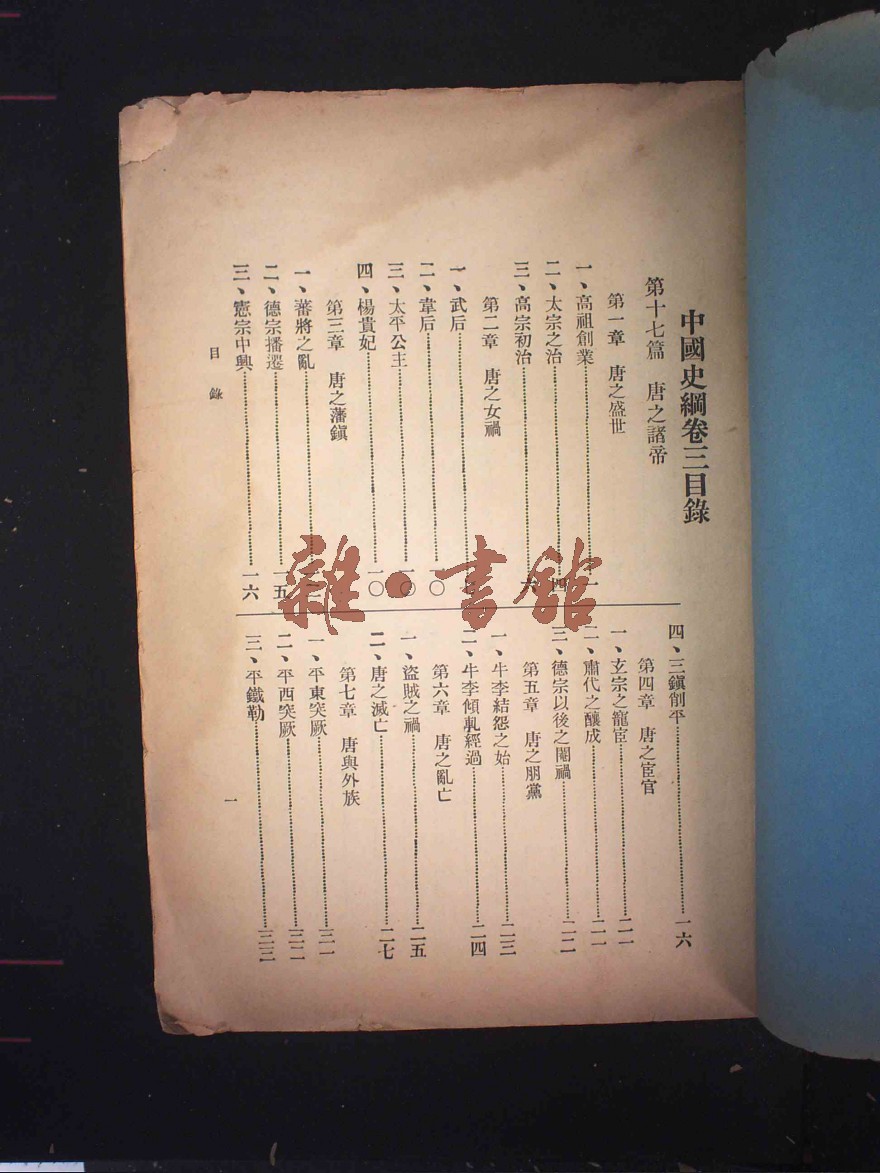 中國史綱卷三目錄
第十七篇 唐之諸帝
第一章 唐之盛世
一、高祖創業
二、太宗之治
三、高宗初治
第二章 唐之女禍
一、武后
二、韋后 一〇
三、太平公主 一〇
四、楊貴妃 一〇
第三章 唐之藩鎭
一、蕃將之亂
二、德宗播遷 一五
三、憲宗中興 一六
四、三鎭削平 一六
第四章 唐之宦官
一、玄宗之寵宦 二一
二、肅代之釀成 二一
三、德宗以後之閹禍 二二
第五章 唐之朋黨
一、牛李結怨之始 二三
二、牛李傾軋經過 二四
第六章 唐之亂亡
一、盜賊之禍 二五
二、唐之滅亡 二七
第七章 唐與外族
一、平東突厥 三一
二、平西突厥 三二
三、平鐵勒 三三
目錄
一
雜·書館